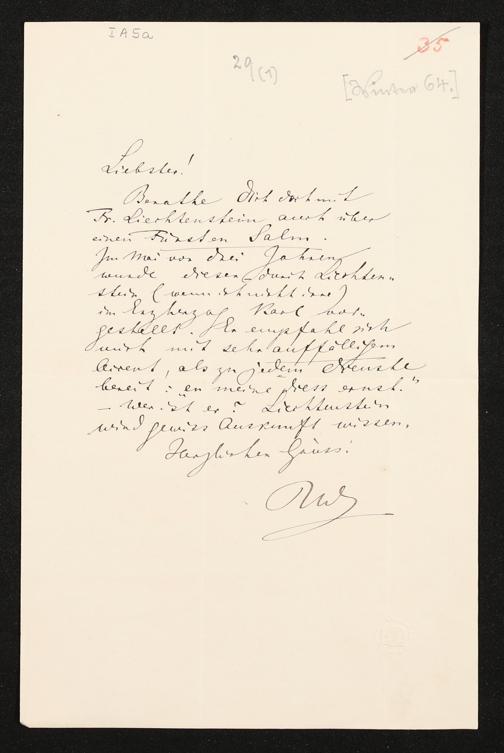 I A 5a
35
29 (1)
[Winter 64.]
Liebster!
Berathe Dich doch mit
Fr. Liechtenstein auch über
einen Fürsten Salm.
Im Mai vor drei Jahren
wurde dieser durch Liechten-
stein (wenn ich nicht irre)
im Erzherzog Karl vor-
gestellt. Er empfahl sich
mir mit sehr auffälligem
Accent, als zu jedem Dienste
bereit: "en meine dress ernst."
– Wer ist er? Liechtenstein
wird gewiss Auskunft wissen.
Herzlichen Gruss!